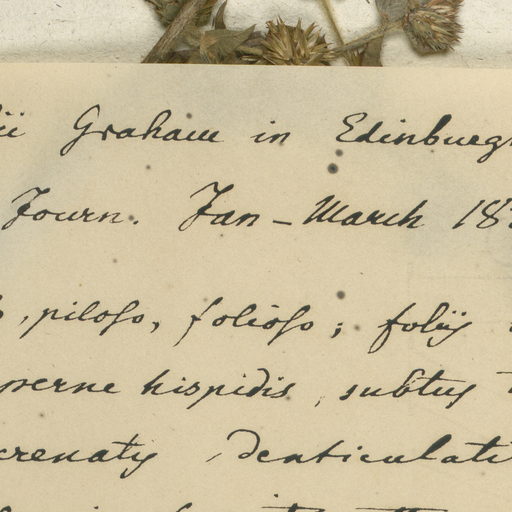 ii Graham in Edinburg
Journ. Jan - March 18
, piloso, folioso; foliis
perne hispidis, subtus
crenatis, denticulati